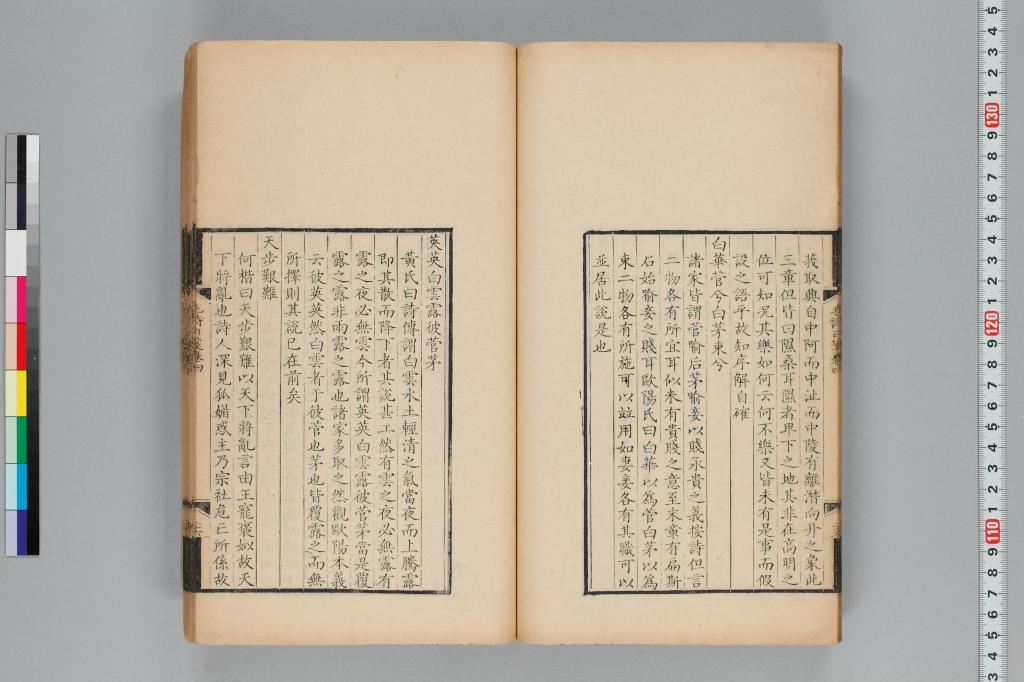 莪取興自中阿而中沚而中陵有離潛向升之象此
三章但皆曰隰桑耳隰者卑下之地其非在高明之
位可知况其樂如何云何不樂又皆未有是事而假
設之語乎故知序解自確
白華菅兮白茅束兮
諸家皆謂菅喻后茅喻妾以賤承貴之義按詩但言
二物各有所宜耳似未有貴賤之意至末章有扁斯
石始喻妾之賤耳歐陽氏曰白華以為菅白茅以為
束二物各有所施可以並用如妻妾各有其職可以
並居此說是也
英英白雲露彼菅茅
黃氏曰詩傳謂白雲水土輕清之氣當夜而上騰露
即其散而降下者其說甚工然有雲之夜必無露有
露之夜必無雲今所謂英英白雲露彼菅茅當是覆
露之露非雨露之露也諸家多取之然觀歐陽本義
云彼英英然白雲者于彼菅也茅也皆覆露之而無
所擇則其說已在前矣
天步艱難
何楷曰天步艱難以天下將亂言由王寵褒姒故天
下將亂也詩人深見狐媚惑主乃宗社危亡所係故